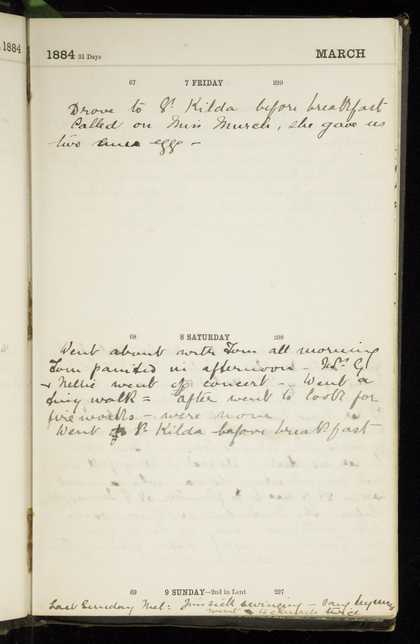 1884
1884 31 Days MARCH
67 7 FRIDAY 299
Drove to St. Kilda before breakfast
Called on Miss Murch, she gave us
two eggs -
68 8 SATURDAY 298
Went about with Tom all morning
Tom painted in afternoon -
& Nellie went to concert - Went a
long walk = after went to look for
fireworks - were none
Went to St. Kilda before breakfast
69 9 SUNDAY—2nd in Lent 297
Last Sunday Mel: Jim sick - sang hymns
went to church twice